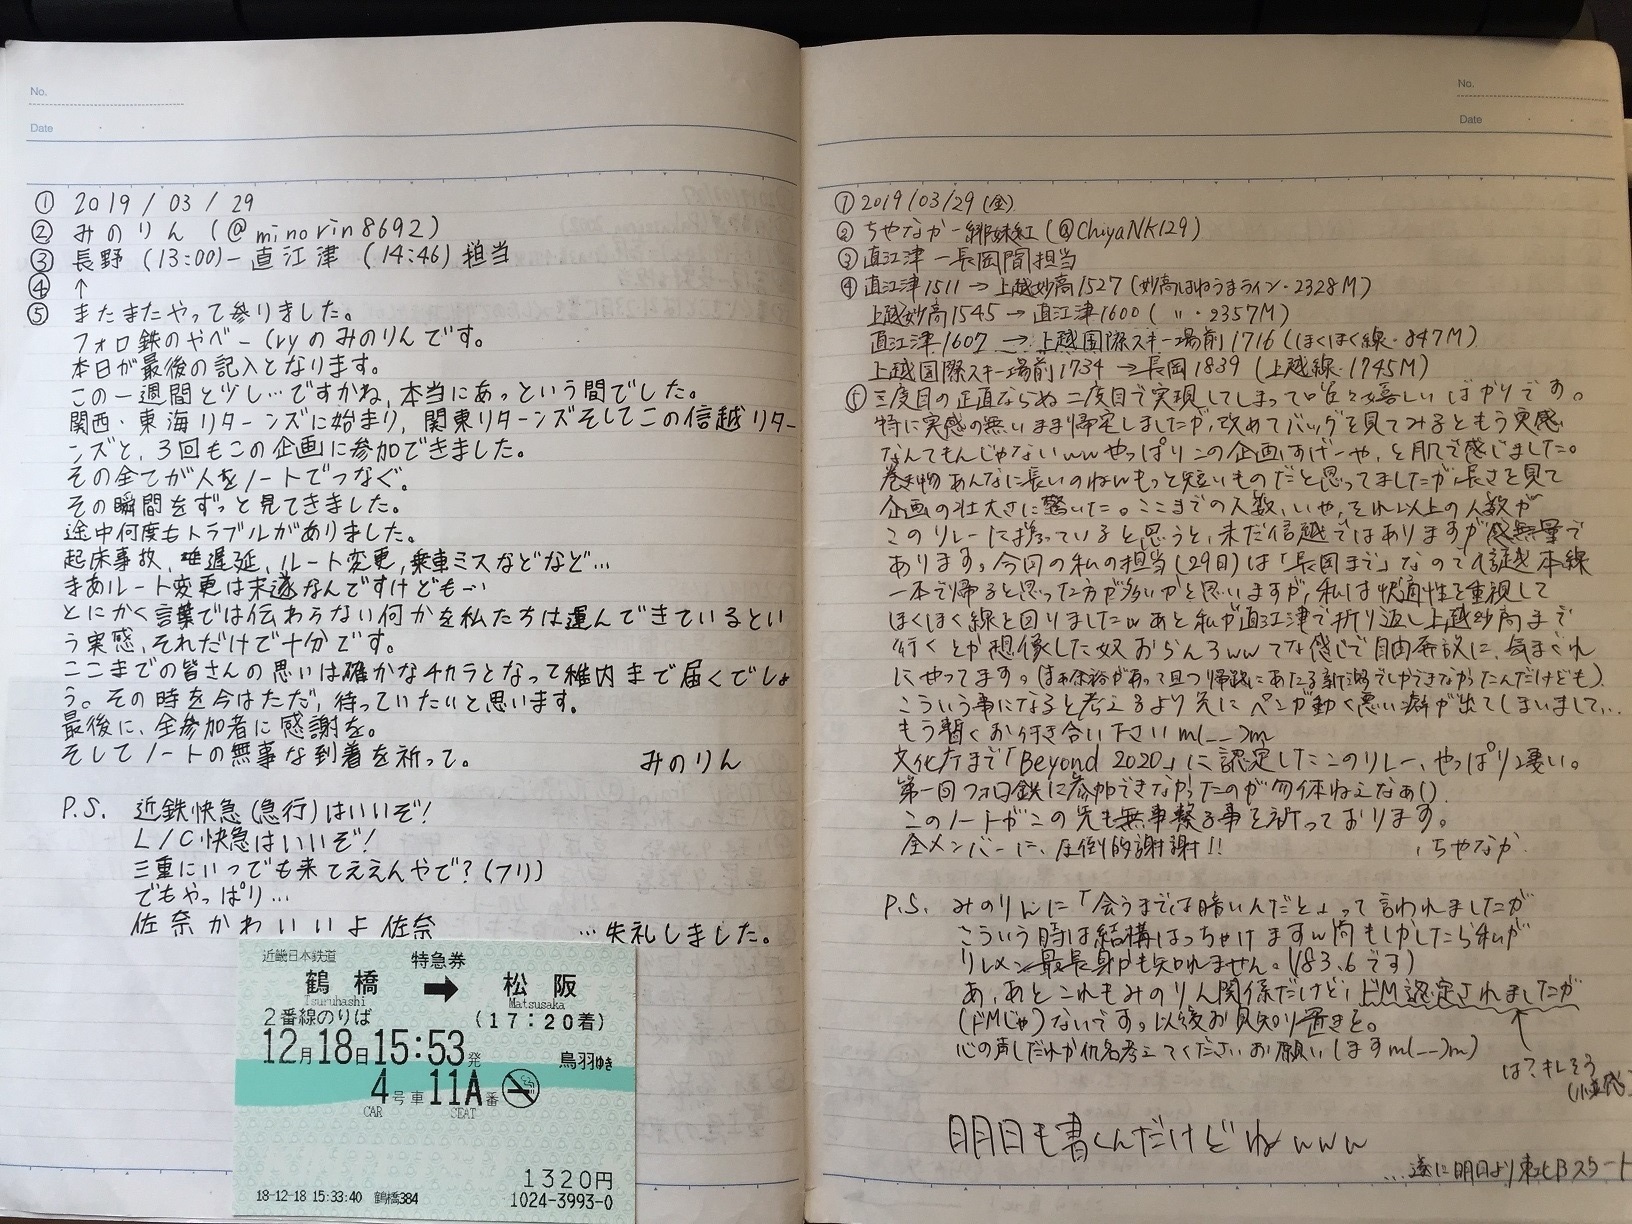 No.
Date
① 2019/03/29
② みのりん (@minorin8692)
③ 長野(13:00)-直江津(14:46)担当
④ ↑
⑤ またまたやって参りました。
フォロ鉄のやべー(ryのみのりんです。
本日が最後の記入となります。
この一週間と少し…ですかね、本当にあっという間でした。
関西・東海リターンズに始まり、関東リターンズそしてこの信越リター
ンズと、3回もこの企画に参加できました。
その全てが人をノートでつなぐ。
その瞬間をずっと見てきました。
途中何度もトラブルがありました。
起床事故、遅延、ルート変更、乗車ミスなどなど…
まあルート変更は未遂なんですけども…
とにかく言葉では伝わらない何かを私たちは運んできているとい
う実感、それだけで十分です。
ここまでの皆さんの思いは確かなチカラとなって稚内まで届くでしょ
う。その時を今はただ、待っていたいと思います。
最後に、全参加者に感謝を。
そしてノートの無事な到着を祈って。 みのりん
P.S. 近鉄快急(急行)はいいぞ!
L/C快急はいいぞ!
三重にいつでも来てええんやで?(フリ)
でもやっぱり…
佐奈かわいいよ佐奈 …失礼しました。
近畿日本鉄道 特急券
鶴橋 ➡ 松阪
Tsuruhashi Matsusaka
2番線のりば (17:20着)
12月18日15:53発 鳥羽ゆき
4号車11A番
CAR SEAT
1320円
18-12-18 15:33:40 鶴橋384 1024-3993-0
No.
Date
① 2019/03/29(金)
② ちやなか-緋妹紅(@ChiyaNK129)
③ 直江津-長岡間担当
④ 直江津1511→上越妙高1527(妙高はねうまライン・2328M)
上越妙高1545→直江津1600( 〃 ・2357M)
直江津1607→上越国際スキー場前1716(ほくほく線・847M)
上越国際スキー場前1734→長岡1839(上越線・1745M)
⑤ 三度目の正直ならぬ二度目で実現してしまって嬉しいばかりです。
特に実感の無いまま帰宅しましたが、改めてバッグを見てみるともう実感
なんてもんじゃないwwやっぱりこの企画すげーや、と肌で感じました。
巻き物あんなに長いのねwもっと短いものだと思ってましたが長さを見て
企画の壮大さに驚いた。ここまでの人数、いや、それ以上の人数が
このリレーに携っていると思うと、未だ信越ではありますが感無量で
あります。今回の私の担当(29日)は「長岡まで」なので信越本線
一本で帰ると思った方が多いかと思いますが、私は快適性を重視して
ほくほく線を回りましたwあと私が直江津で折り返し上越妙高まで
行くとか想像した奴おらんろwwてな感じで自由奔放に、気まぐれ
にやってます。(まぁ余裕があって且つ帰路にあたる新潟でしかできなかったんだけども)
こういう事になると考えるより先にペンが動く悪い癖が出てしまいまして…
もう暫くお付き合い下さいm(__)m
文化庁まで「Beyond 2020」に認定したこのリレー、やっぱり凄い。
第一回フォロ鉄に参加できなかったのが勿体ねえなぁ()
このノートがこの先も無事繋る事を祈っております。
全メンバーに、圧倒的謝謝!! ちやなか
P.S. みのりんに「会うまでは暗いんだと」って言われましたが
こういう時は結構はっちゃけますw尚もしかしたら私が
リレメン最長身かも知れません。(183.6です)
あ、あとこれもみのりん関係だけど、ドM認定されましたが
(ドMじゃ)ないです。以後お見知り置きを。
心の声しだれか仇名考えてくださいお願いしますm(__)m)
は?キレそう
明日も書くんだけどねwww
…遂に明日より東北Bスタート